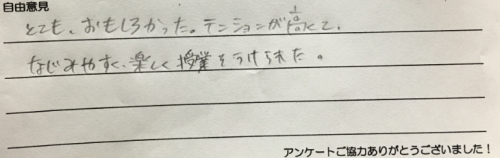 自由意見
とても、おもしろかった。テンションが高くて、
なじみやすく、楽しく授業をうけられた。
アンケートご協力ありがとうございました！